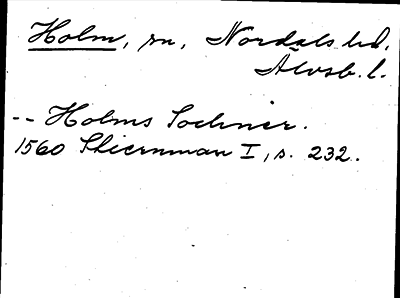 Holm, sn, Nordals hd.
Älvsb. l.
-- Holms Sochner.
1560 Stiernman I, s. 232.